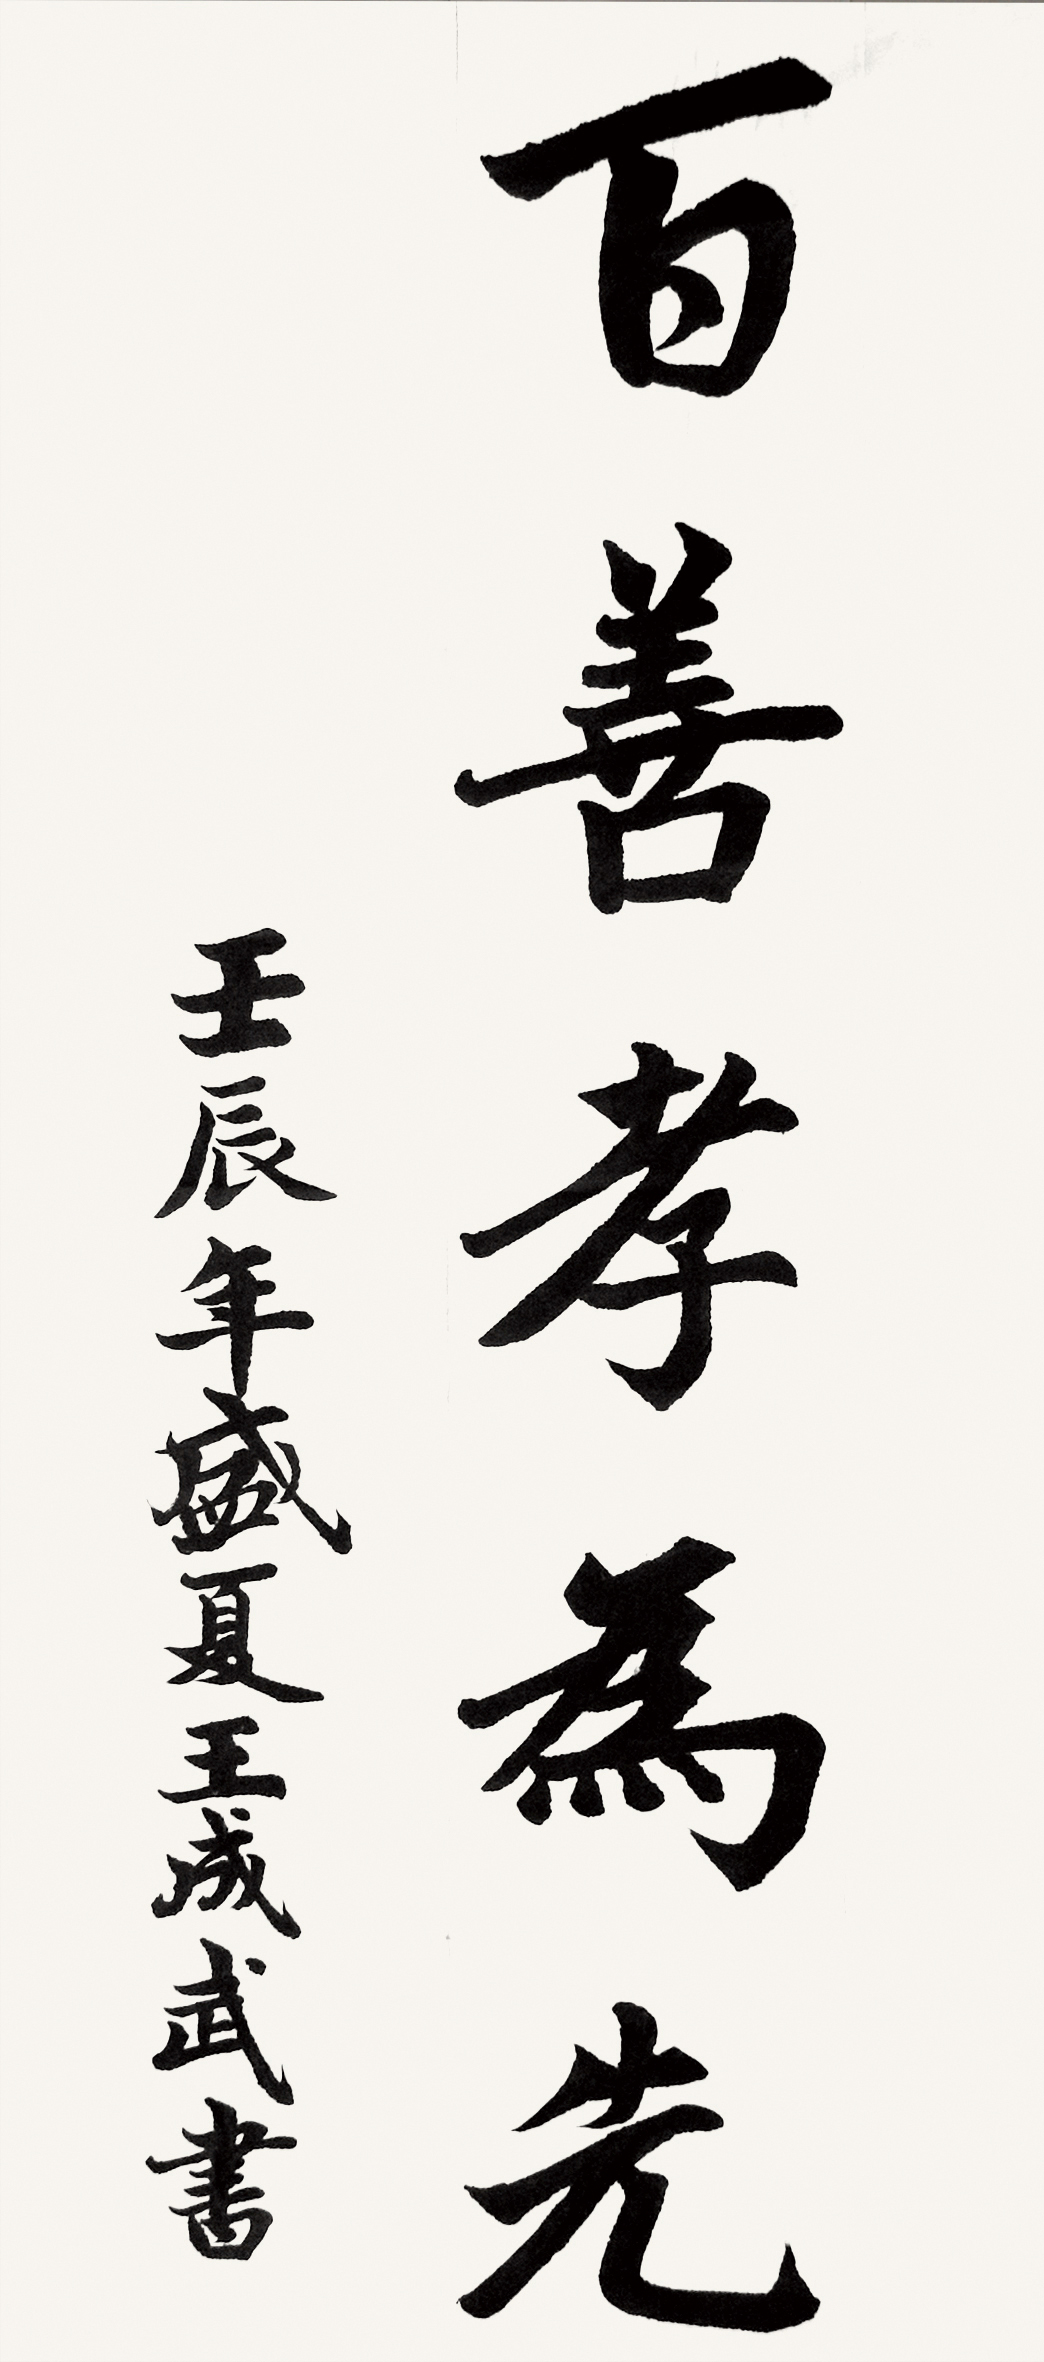 百善孝為先
壬辰年盛夏王成武書